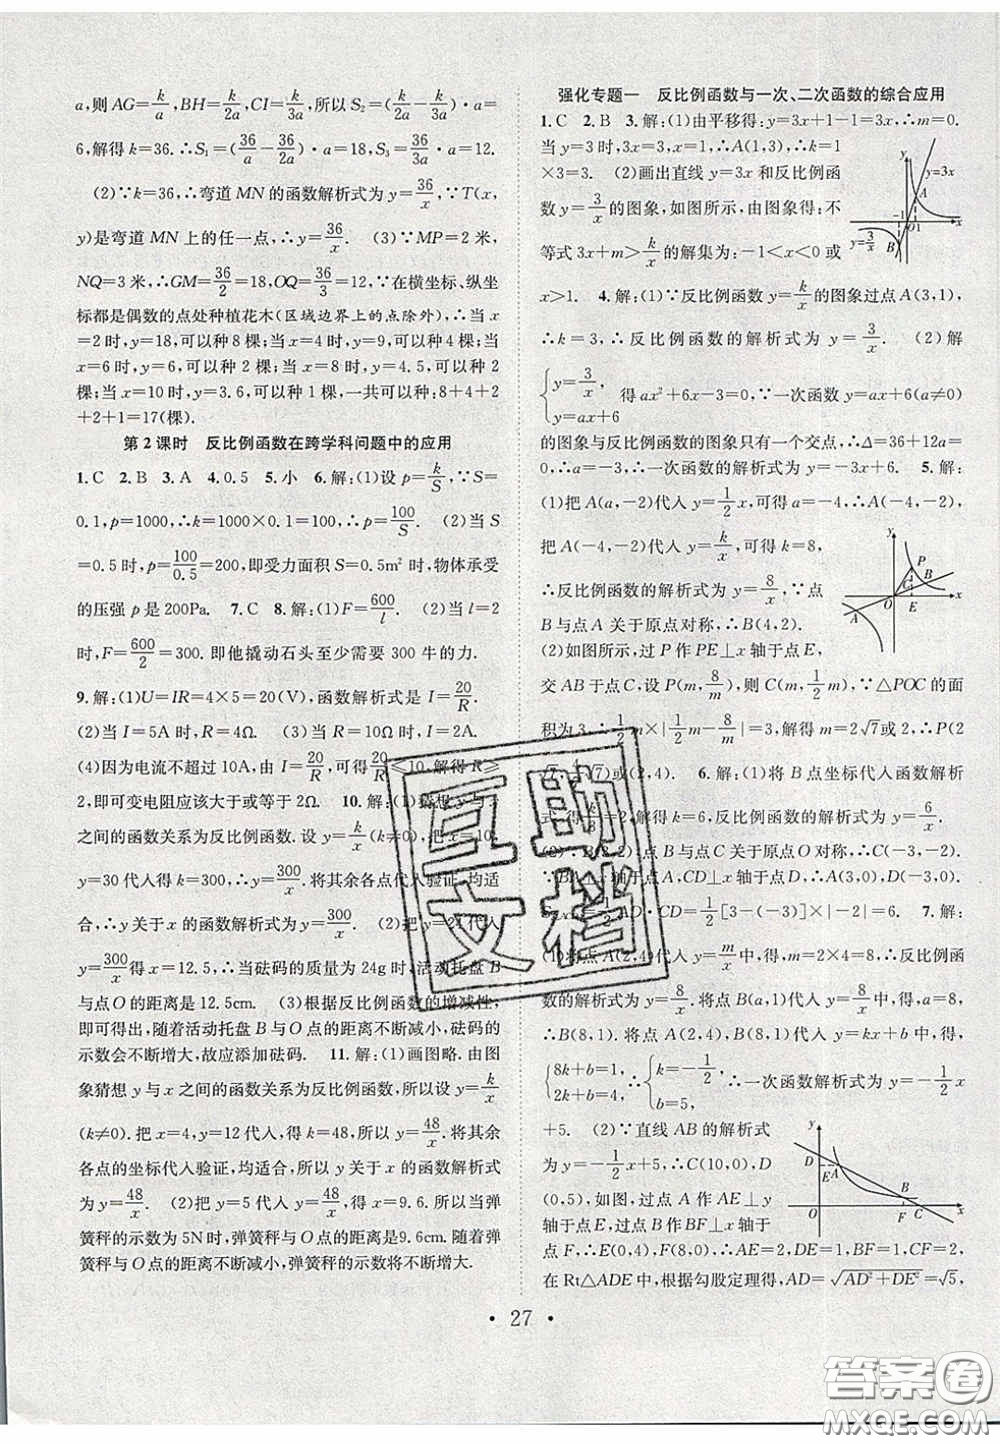 a,则 AG=k/a,BH=k/2a,CI=k/3a,所以 S₂=(k/2a-k/3a)·a=
6,解得 k=36.∴S₁=(36/a-36/2a)·a=18,S₃=36/3a·a=12.
(2)∵k=36,∴弯道 MN 的函数解析式为 y=36/x,∵T(x,
y)是弯道 MN 上的任一点,∴y=36/x. (3)∵MP=2 米,
NQ=3 米,∴GM=36/2=18,OQ=36/3=12,∵在横坐标、纵坐
标都是偶数的点处种植花木(区域边界上的点除外),∴当 x
=2 时,y=18,可以种 8 棵;当 x=4 时,y=9,可以种 4 棵;当
x=6 时,y=6,可以种 2 棵;当 x=8 时,y=4.5,可以种 2
棵;当 x=10 时,y=3.6,可以种 1 棵,一共可以种:8+4+2
+2+1=17(棵).
第 2 课时 反比例函数在跨学科问题中的应用
1.C 2.B 3.A 4.0.5 5.小 6.解:(1)设 p=k/S,∵S=
0.1,p=1000,∴k=1000×0.1=100,∴p=100/S. (2)当 S
=0.5时,p=100/0.5=200,即受力面积 S=0.5m²时,物体承受
的压强 p 是200Pa. 7.C 8.解:(1)F=600/l. (2)当 l=2
时,F=600/2=300. 即他撬动石头至少需要 300 牛的力.
9.解:(1)U=IR=4×5=20(V),函数解析式是 I=20/R.
(2)当 I=5A时,R=4Ω. (3)当 R=10Ω时,I=2A.
(4)因为电流不超过 10A,由 I=20/R,可得20/R≤10,解得 R≥
2,即可变电阻应该大于或等于 2Ω. 10.解:(1)猜想 y 与 x
之间的函数关系为反比例函数. 设 y=k/x(k≠0),把 x=10,
y=30 代入得 k=300,∴y=300/x. 将其余各点代入验证,均适
合,∴y 关于 x 的函数解析式为 y=300/x. (2)把 y=24 代入
y=300/x得 x=12.5,∴当砝码的质量为 24g 时,活动托盘 B
与点 O 的距离是 12.5cm. (3)根据反比例函数的增减性,
即可得出,随着活动托盘 B 与 O 点的距离不断减小,砝码的
示数会不断增大,故应添加砝码. 11.解:(1)画图略. 由图
象猜想 y 与 x 之间的函数关系为反比例函数,所以设 y=k/x
(k≠0). 把 x=4,y=12 代入,得 k=48,所以 y=48/x. 将其余
各点的坐标代入验证,均适合,所以 y 关于 x 的函数解析式
为 y=48/x. (2)把 y=5 代入 y=48/x,得 x=9.6. 所以当弹
簧秤的示数为 5N时,弹簧秤与 O 点的距离是9.6cm. 随着弹
簧秤与 O 点的距离不断减小,弹簧秤的示数将不断增大.
强化专题一 反比例函数与一次、二次函数的综合应用
1.C 2.B 3.解:(1)由平移得:y=3x+1-1=3x,∴m=0.
当 y=3 时,3x=3,x=1,∴A(1,3),∴k=1
×3=3. (2)画出直线 y=3x 和反比例函
数 y=3/x的图象,如图所示,由图象得:不
等式 3x+m>k/x的解集为:-1<x<0 或
x>1. 4.解:(1)∵反比例函数 y=k/x的图象过点 A(3,1),
∴k=3,∴反比例函数的解析式为 y=3/x. (2)解
{y=3/x, y=ax+6 得 ax²+6x-3=0,∵一次函数 y=ax+6(a≠0)
的图象与反比例函数的图象只有一个交点,∴Δ=36+12a=
0,∴a=-3,∴一次函数的解析式为 y=-3x+6. 5.解:
(1)把 A(a,-2)代入 y=1/2x,可得 a=-4,∴A(-4,-2),
把 A(-4,-2)代入 y=k/x,可得 k=8,
∴反比例函数的解析式为 y=8/x,∵点
B 与点 A 关于原点对称,∴B(4,2).
(2)如图所示,过 P 作 PE⊥x 轴于点 E,
交 AB 于点 C,设 P(m,8/m),则 C(m,1/2m),∵△POC 的面
积为 3,∴1/2m×|1/2m-8/m|=3,解得 m=2√7或 2,∴P(2
√7,4/7√7)或(2,4). 6.解:(1)将 B 点坐标代入函数解析
式,得k/3=2,解得 k=6,反比例函数的解析式为 y=6/x.
(2)∵B(3,2),点 B 与点 C 关于原点 O 对称,∴C(-3,-2).
1/2AD·CD=1/2[3-(-3)]×|-2|=6. 7.解:
(1)将点 A(2,4)代入 y=m/x中,得 m=8,∴反比例函
数的解析式为 y=8/x. 将点 B(n,1)代入 y=8/x中,得,n=8,
∴B(8,1). 将点 A(2,4),B(8,1)代入 y=kx+b 中,得,
{8k+b=1, 2k+b=4, ∴{k=-1/2, b=5, ∴一次函数解析式为 y=-1/2x
+5. (2)∵直线 AB 的解析式为
y=-1/2x+5,∴C(10,0),D
(0,5),如图,过点 A 作 AE⊥y
轴于点 E,过点 B 作 BF⊥x 轴于
点 F,∴E(0,4),F(8,0),∴AE=2,DE=1,BF=1,CF=2,
在 Rt△ADE 中,根据勾股定理得,AD=√AD²+DE²=√5,
• 27 •
互助
文档
答案圈
MXQE.COM